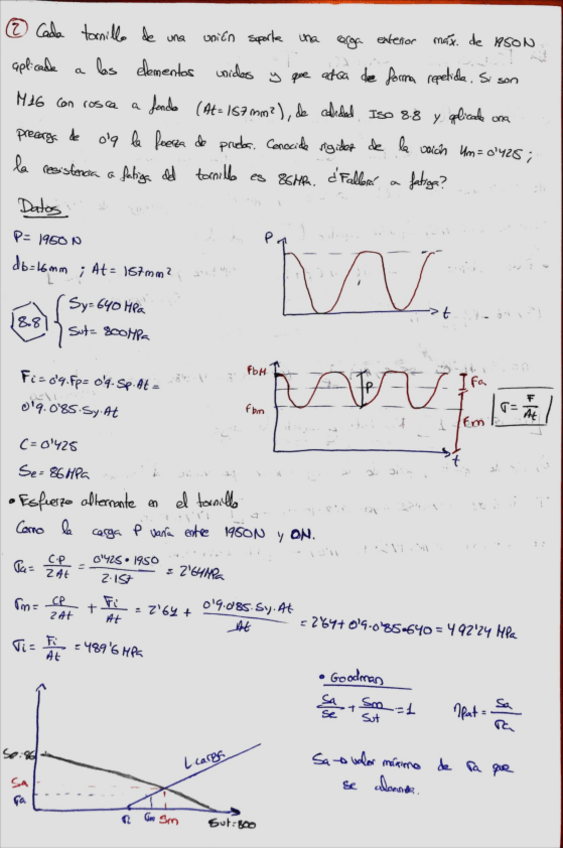 ② Cada tornillo de una unión soporta una carga exterior máx. de 1950N
aplicada a los elementos unidos y que actúa de forma repetida. Si son
M16 con rosca a fondo (At=157mm²), de calidad ISO 8.8 y aplicada una
precarga de 0'9 la fuerza de prueba. Conocida rigidez de la unión Km=0'425;
la resistencia a fatiga del tornillo es 86MPa. ¿Fallará a fatiga?
Datos
P= 1950N
db=16mm ; At = 157mm²
8.8
Sy=640MPa
Sut= 800MPa
P
t
Fi=0'9·Fp=0'9·Sp·At=
0'9·0'85·Sy·At
C=0'425
Se=86MPa
FbM
Fbm
P
Fa
Fm
t
σ= F/At
• Esfuerzo alternante en el tornillo
Como la carga P varía entre 1950N y 0N.
σa= C·P/2At = 0'425·1950/2·157 = 2'64MPa
σm= CP/2At + Fi/At = 2'64 + 0'9·0'85·Sy·At/At = 2'64+0'9·0'85·640=492'24 MPa
σi= Fi/At =489'6MPa
• Goodman
Sa/Se + Sm/Sut =1
ηfat= Sa/σa
Sa→valor mínimo de σa que
se
Se=86
Sa
σa
L carga
σi
σm
Sm
Sut=800